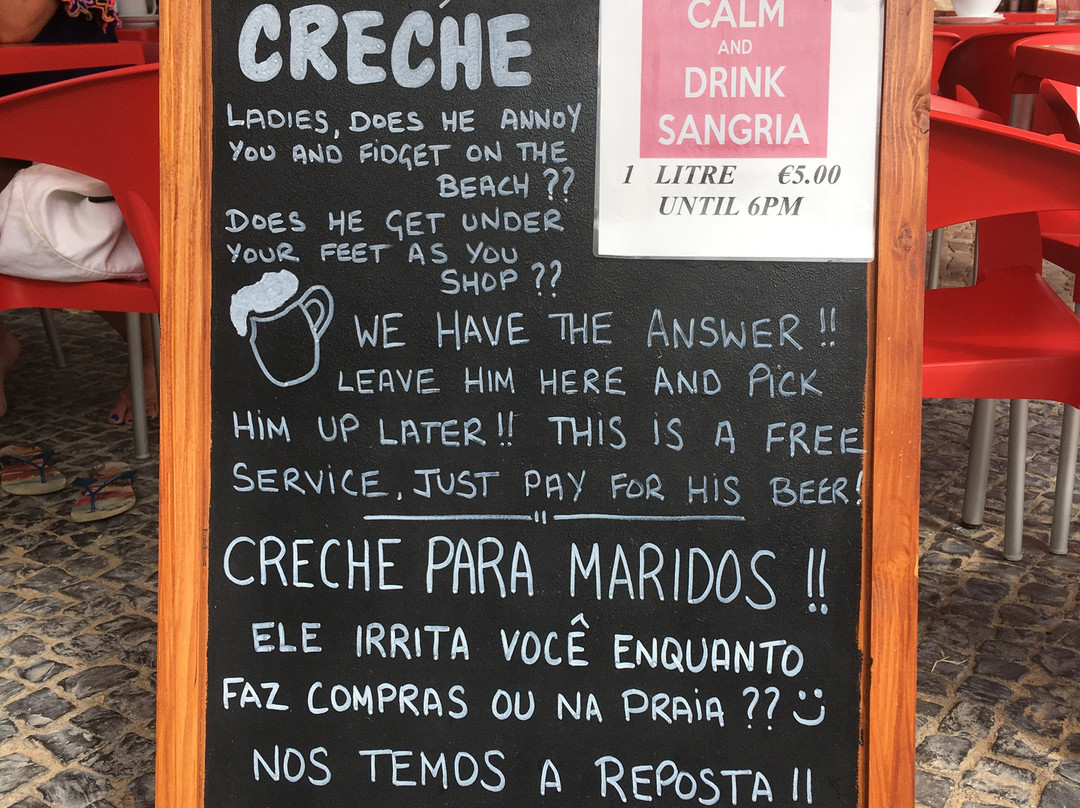 CRECHE
LADIES, DOES HE ANNOY
YOU AND FIDGET ON THE
BEACH ??
DOES HE GET UNDER
YOUR FEET AS YOU
SHOP ??
WE HAVE THE ANSWER !!
LEAVE HIM HERE AND PICK
HIM UP LATER !! THIS IS A FREE
SERVICE, JUST PAY FOR HIS BEER!
CRECHE PARA MARIDOS !!
ELE IRRITA VOCÊ ENQUANTO
FAZ COMPRAS OU NA PRAIA ??
NOS TEMOS A REPOSTA !!
CALM
AND
DRINK
SANGRIA
1 LITRE €5.00
UNTIL 6PM